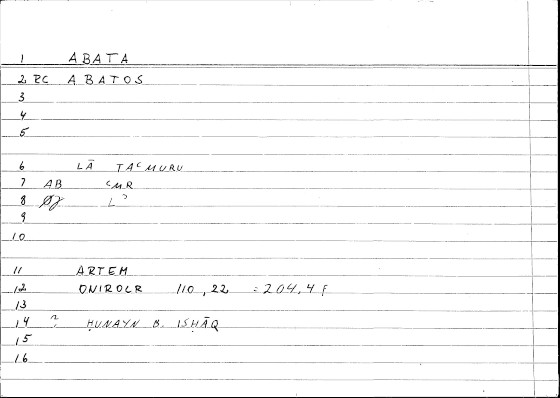 1 ABATA
2 RC ABATOS
3
4
5
6 LĀ TAᶜMURU
7 AB ᶜMR
8 L ʾ
9
10
11 ARTEM
12 ONIROCR 110, 22 = 204, 4 f
13
14 ? ḤUNAYN B. ISḤĀQ
15
16